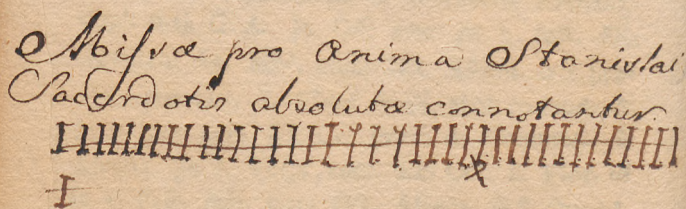 Missæ pro Anima Stanislai
Sacerdotis absolutæ connotantur.